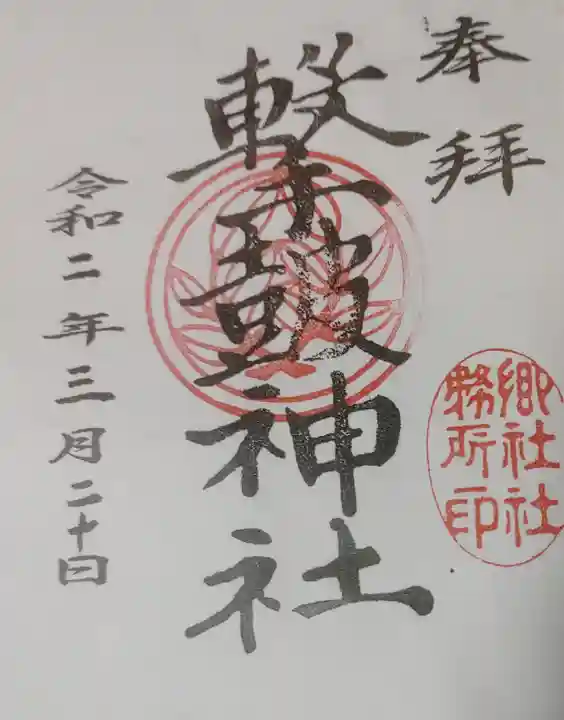 奉拝
撃鼓神社
郷社社
務所印
令和二年三月二十日